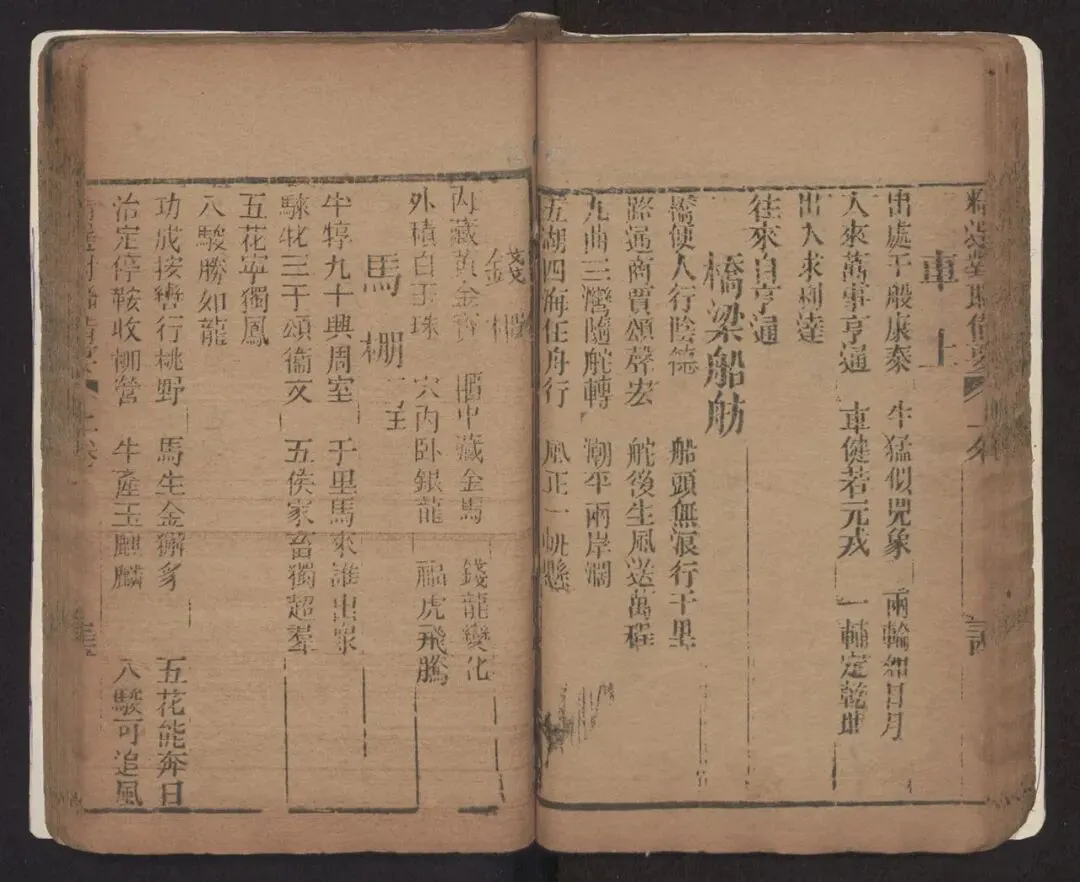 車上
出處千般康泰 牛猛似兕象 兩輪如日月
入來萬事亨通 車健若元戎 一輔定乾坤
出入求利達
往來自亨通
橋梁船舫
濟使人行陰德 船頭無浪行千里
路通商賈頌聲宏 舵後生風送萬程
九曲三灣隨舵轉 潮平兩岸濶
五湖四海任舟行 風正一帆懸
錢櫃
內藏黃金寶 櫃中藏金馬 錢龍變化
外積白玉珠 穴內臥銀龍 福虎飛騰
馬棚
牛犉九十興周室 千里馬來誰出衆
騋牝三千頌衞文 五侯家畜獨超羣
五花寧獨鳳
八駿勝如龍
功成按轡行桃野 馬生金獬豸 五花能奔日
治定停鞍收柳營 牛產玉麒麟 八駿可追風